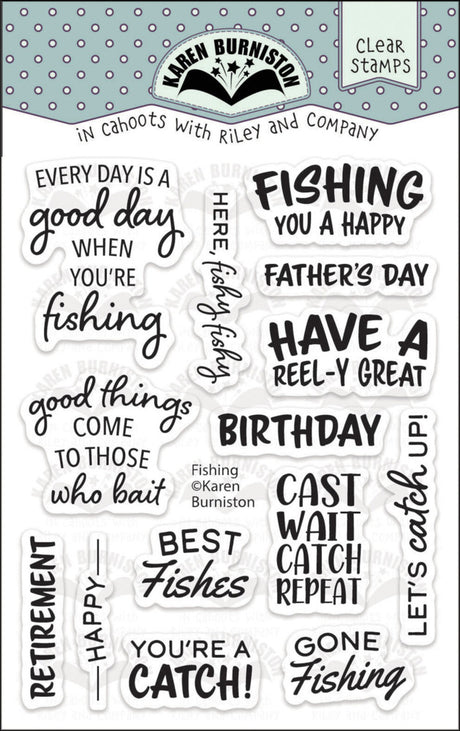 KAREN BURNISTON
CLEAR
STAMPS
IN CAHOOTS WITH RILEY AND COMPANY
EVERY DAY IS A
good day
WHEN
YOU'RE
fishing
HERE, fishy fishy
FISHING
YOU A HAPPY
FATHER'S DAY
HAVE A
REEL-Y GREAT
good things
COME
TO THOSE
who bait
BIRTHDAY
Fishing
©Karen
Burniston
CAST
WAIT
CATCH
REPEAT
LET'S catch UP!
RETIREMENT
HAPPY
BEST
Fishes
YOU'RE A
CATCH!
GONE
Fishing